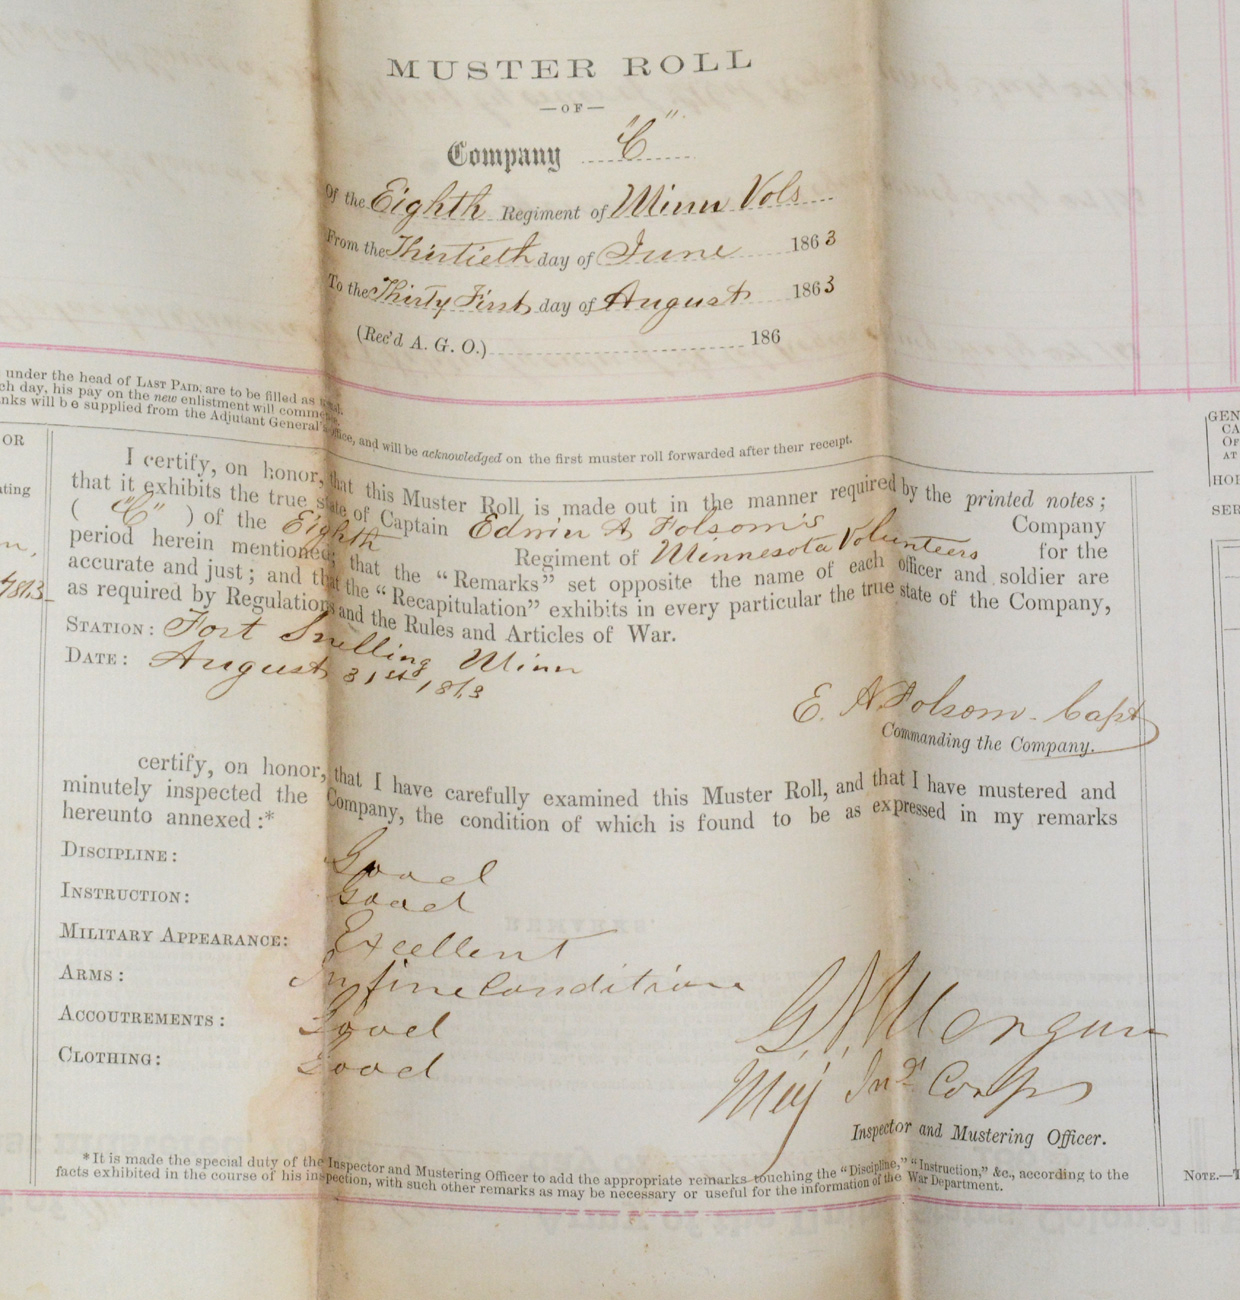 MUSTER ROLL
—OF—
Company "C"
Of the Eighth Regiment of Minn Vols
From the Thirtieth day of June 1863
To the Thirty First day of August 1863
(Rec'd A. G. O.) 186
under the head of LAST PAID, are to be filled as
ch day, his pay on the new enlistment will commence
nks will be supplied from the Adjutant General's Office, and will be acknowledged on the first muster roll forwarded after their receipt.
OR
ating
I certify, on honor, that this Muster Roll is made out in the manner required by the printed notes;
that it exhibits the true state of Captain Edwin A Folsom's Company
( "C" ) of the Eighth Regiment of Minnesota Volunteers for the
period herein mentioned; that the "Remarks" set opposite the name of each officer and soldier are
accurate and just; and that the "Recapitulation" exhibits in every particular the true state of the Company,
as required by Regulations and the Rules and Articles of War.
STATION: Fort Snelling Minn
DATE: August 31st 1863
E. A Folsom. Capt
Commanding the Company.
certify, on honor, that I have carefully examined this Muster Roll, and that I have mustered and
minutely inspected the Company, the condition of which is found to be as expressed in my remarks
hereunto annexed:*
DISCIPLINE: Good
INSTRUCTION: Good
MILITARY APPEARANCE: Excellent
ARMS: In fine Condition
ACCOUTREMENTS: Good
CLOTHING: Good
Maj Ind Corps
Inspector and Mustering Officer.
*It is made the special duty of the Inspector and Mustering Officer to add the appropriate remarks touching the "Discipline," "Instruction," &c., according to the
facts exhibited in the course of his inspection, with such other remarks as may be necessary or useful for the information of the War Department.
GEN
CA
OF
AT
HOR
SER
NOTE.—T